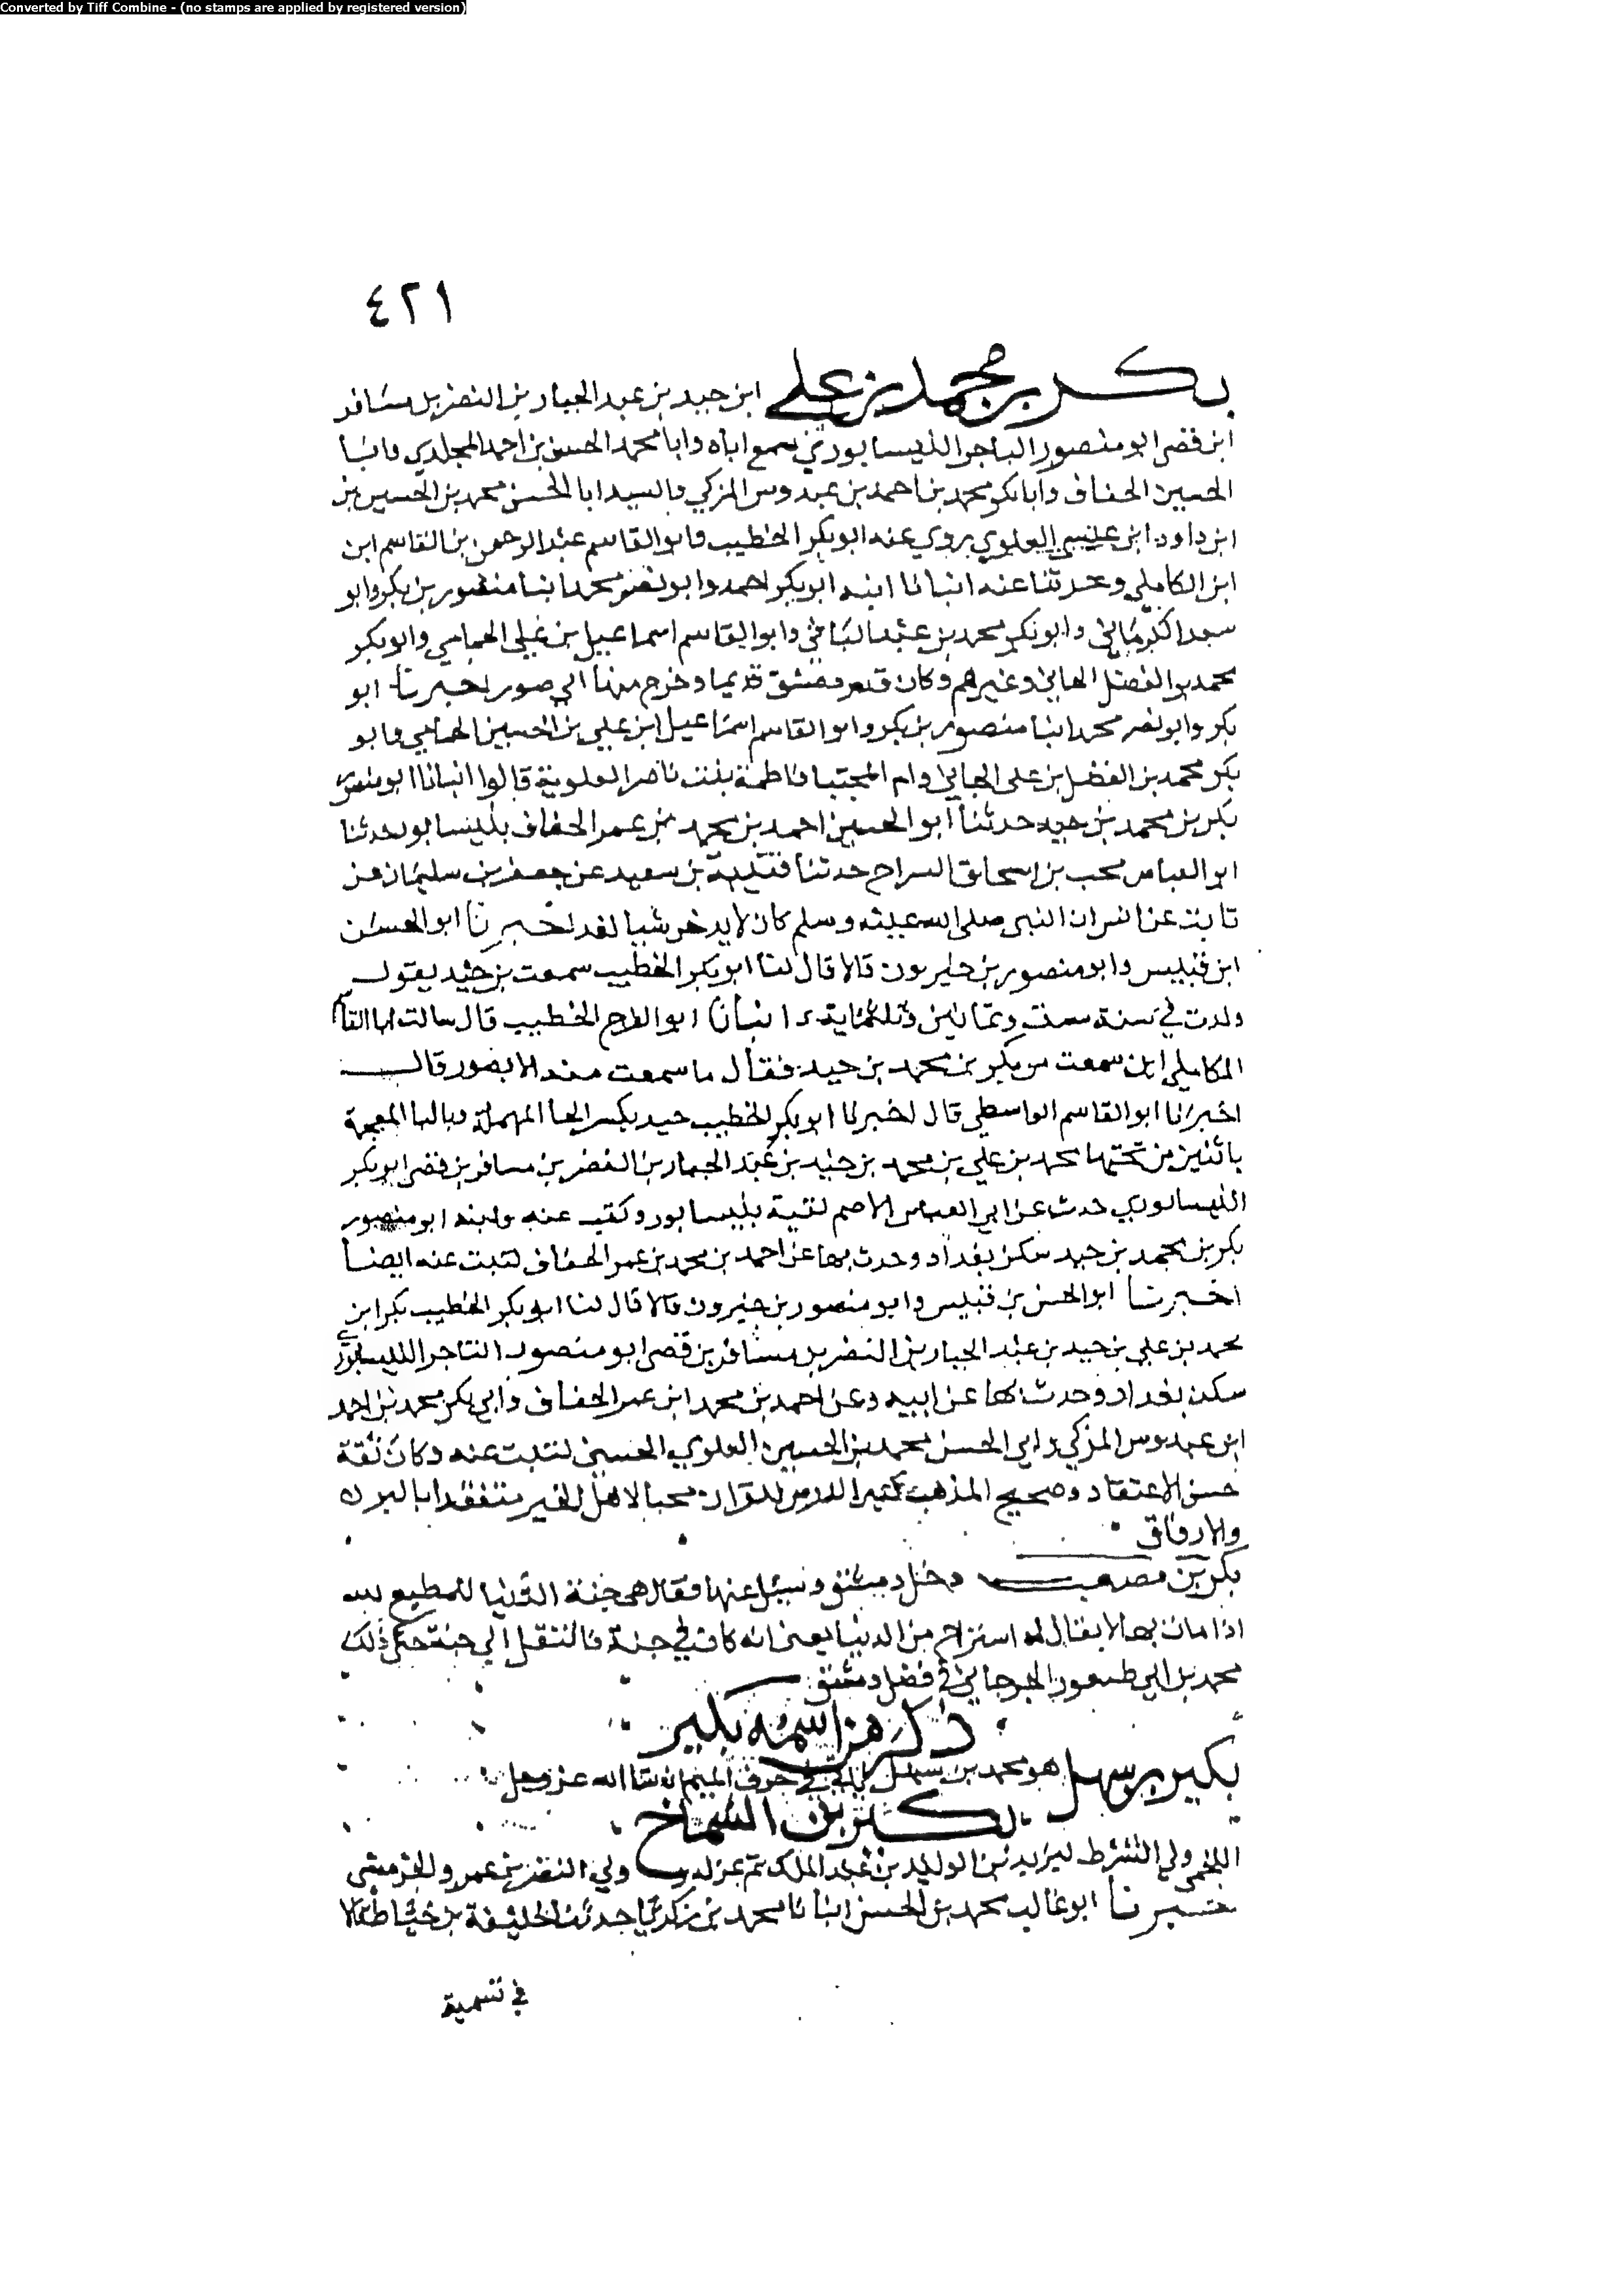 Converted by Tiff Combine - (no stamps are applied by registered version)
٤٢١
بكر بن محمد بن علي ابن حيد بن عبد الجبار بن النضر بن مسافر
ابن قصى ابو منصور التاجر النيسابوري سمع اباه وابا محمد الحسن بن احمد المخلدي وابا
الحسين الخفاف وابا بكر محمد بن احمد بن عبدوس المزكي والسيد ابا الحسن محمد بن الحسين بن
ابن داود ابن علي العلوي روي عنه ابو بكر الخطيب وابو القاسم عبد الرحمن بن القاسم ابن
ابن الكاملي وحدثنا عنه انبانا ابنه ابو بكر احمد وابو نصر محمد ابنا منصور بن بكر وابو
سعد الكرماني وابو بكر محمد بن عبد الباقي وابو القاسم اسماعيل بن علي الحمامي وابو بكر
محمد بن الفضل الخاني وغيرهم وكان قدم دمشق قديما وخرج منها الي صور اخبرنا ابو
بكر وابو نصر محمد ابنا منصور بن بكر وابو القاسم اسماعيل ابن علي بن الحسين الحمامي وابو
بكر محمد بن الفضل بن علي الخاني وام المجتبا فاطمة بنت ناصر العلوية قالوا انبانا ابو منصور
بكر بن محمد بن حيد حدثنا ابو الحسين احمد بن محمد بن عمر الخفاف بنيسابور حدثنا
ابو العباس محمد بن اسحاق السراج حدثنا قتيبة بن سعيد عن جعفر بن سليمان عن
ثابت عن انس ان النبي صلى الله عليه وسلم كان لا يدخر شيا لغد اخبرنا ابو الحسن
ابن قبيس وابو منصور بن خيرون قالا قال لنا ابو بكر الخطيب سمعت بن حيد يقول
ولدت في سنة ست وثمانين وثلثماية انبانا ابو الفرج الخطيب قال سالت ابا القاسم
الكاملي اين سمعت من بكر بن محمد بن حيد فقال ما سمعت منه الا بصور قال
اخبرنا ابو القاسم الواسطي قال اخبرنا ابو بكر الخطيب حيد بكسر الحا المهملة وباليا المعجمة
باثنين من تحتها محمد بن علي بن محمد بن حيد بن عبد الجبار بن النضر بن مسافر بن قصى ابو بكر
النيسابوري حدث عن ابي العباس الاصم لقيته بنيسابور وكتبت عنه وابنه ابو منصور
بكر بن محمد بن حيد سكن بغداد وحدث بها عن احمد بن محمد بن عمر الخفاف كتبت عنه ايضا
اخبرنا ابو الحسن بن قبيس وابو منصور بن خيرون قالا قال لنا ابو بكر الخطيب بكر ابن
محمد بن علي بن حيد بن عبد الجبار بن النضر بن مسافر بن قصى ابو منصور التاجر النيسابوري
سكن بغداد وحدث بها عن ابيه وعن احمد بن محمد ابن عمر الخفاف وابي بكر محمد بن احمد
ابن عبدوس المزكي وابي الحسن محمد بن الحسين العلوي الحسني كتبت عنه وكان ثقة
حسن الاعتقاد وصحيح المذهب كثير الدرس للقران محبا لاهل الخير متفقدا بالبر
والارفاق
بكر بن مصعب دخل دمشق وسيل عنها فقال هي جنة الدنيا للمطيع لله
اذا مات بها لا يقال له استراح من الدنيا يعني انه كان في جنة فانتقل الي جنة حكى ذلك
محمد بن ابي طيفور الجرجاني في فضل دمشق
ذكر من اسمه بكير
بكير بن سهل هو محمد بن سهل ياتي في حرف الميم ان شا الله عز وجل
بكير بن الشماخ
اللخمي ولي الشرط ليزيد بن الوليد بن عبد الملك ثم عزله وولي النضر بن عمرو الجرمشي
خبرنا ابو غالب محمد بن الحسن انبانا محمد بن زكريا حدثنا خليفة بن خياط قالا
في تسمية